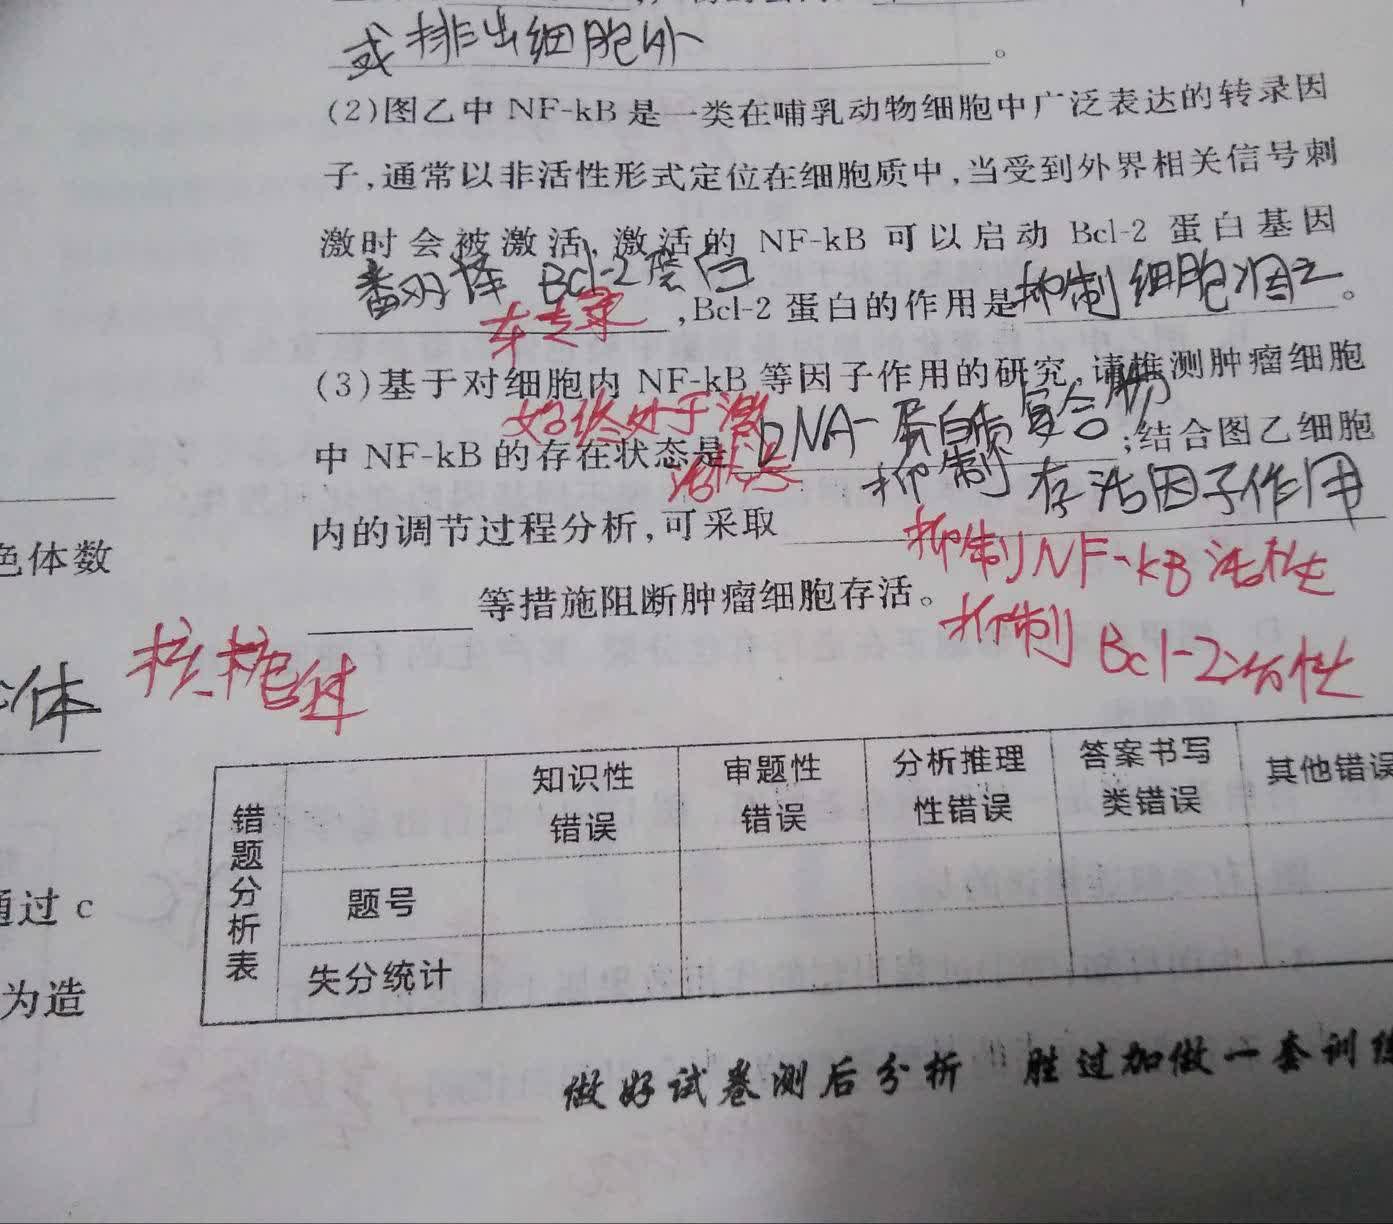 或排出细胞外。
(2)图乙中 NF-kB 是一类在哺乳动物细胞中广泛表达的转录因
子,通常以非活性形式定位在细胞质中,当受到外界相关信号刺
激时会被激活,激活的 NF-kB 可以启动 Bcl-2 蛋白基因
翻译 Bcl-2蛋白
转录
,Bcl-2 蛋白的作用是抑制细胞凋亡。
(3)基于对细胞内 NF-kB 等因子作用的研究,请推测肿瘤细胞
始终处于激
中 NF-kB 的存在状态是DNA-蛋白质复合物;结合图乙细胞
活状态
抑制存活因子作用
内的调节过程分析,可采取
抑制NF-kB活性
等措施阻断肿瘤细胞存活。
抑制Bcl-2活性
色体数
体
核糖体
通过 c
为造
错题分析表
知识性错误
审题性错误
分析推理性错误
答案书写类错误
其他错误
题号
失分统计
做好试卷测后分析 胜过加做一套训练